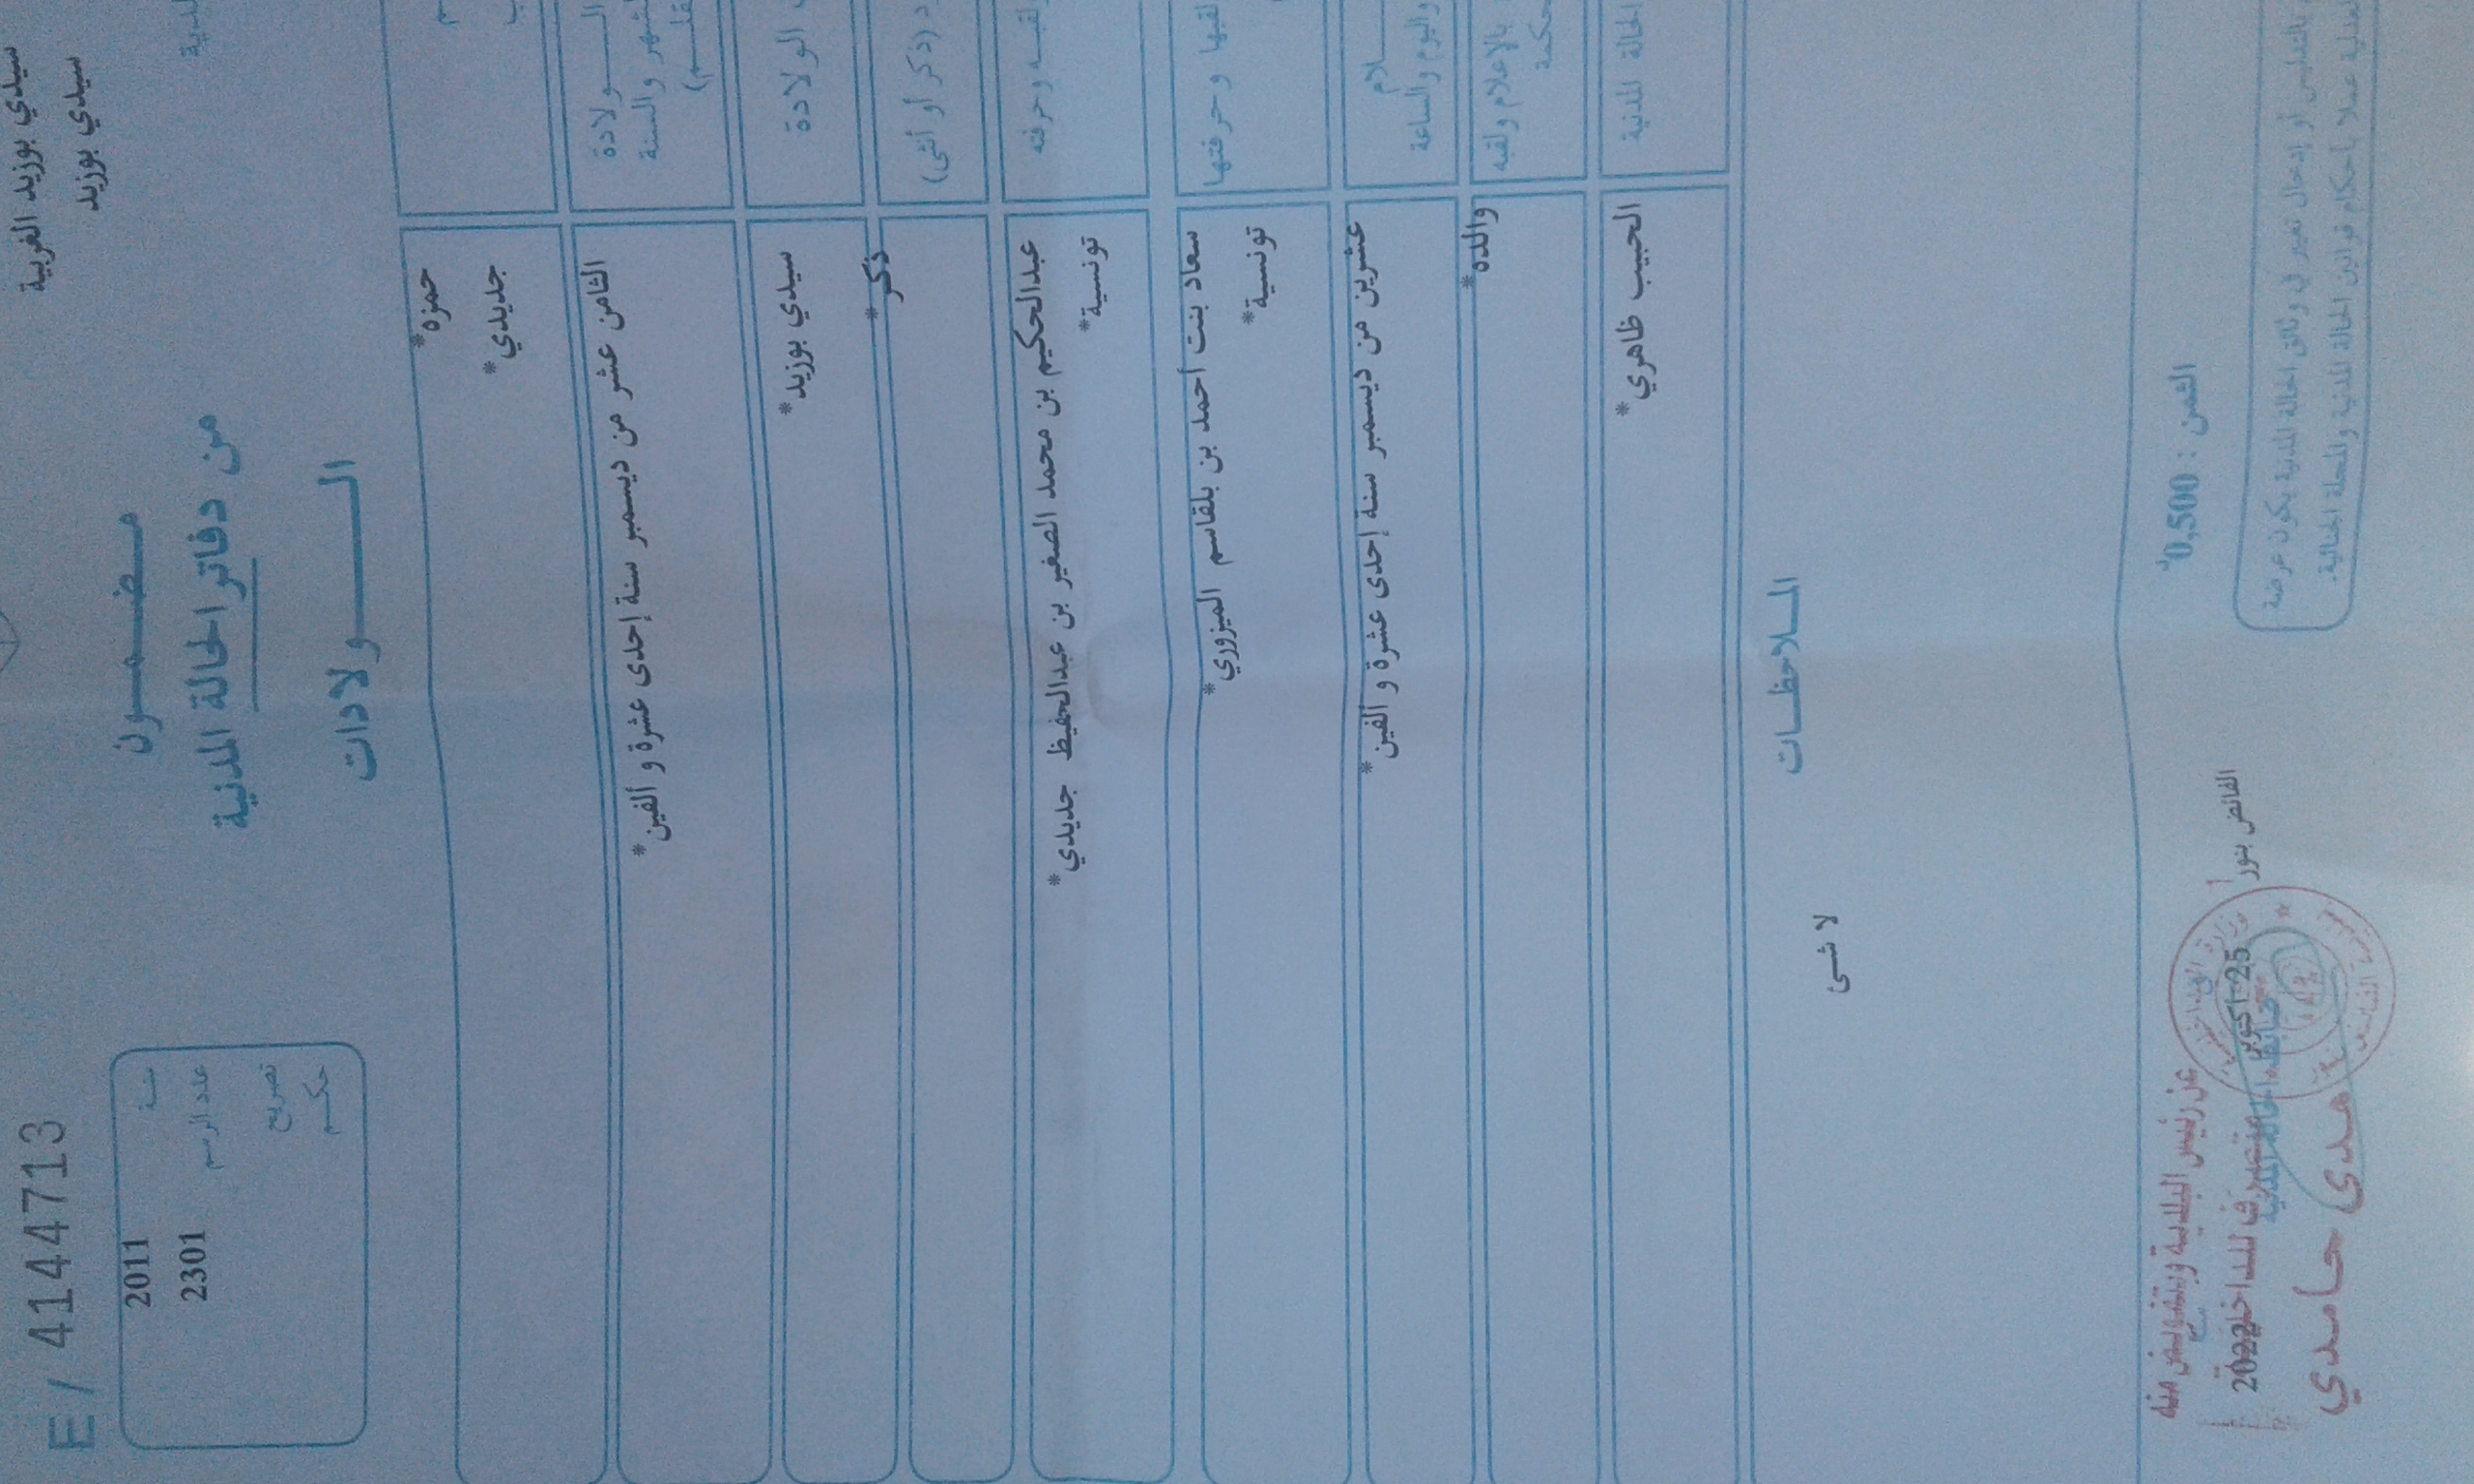 سيدي بوزيد الغربية
سيدي بوزيد
E / 4144713
مضمون
من دفاتر الحالة المدنية
الولادات
سنة 2011
عدد الرسم 2301
تصريح
حكم
حمزه*
جديدي*
الولادة
الشهر والسنة
الثامن عشر من ديسمبر سنة إحدى عشرة و ألفين*
الولادة
سيدي بوزيد*
(ذكر أو أنثى)
ذكر*
لقبه وحرفته
عبدالحكيم بن محمد الصغير بن عبدالحفيظ جديدي*
تونسية*
لقبها وحرفتها
سعاد بنت أحمد بن بلقاسم الميزوري*
تونسية*
واليوم والساعة
عشرين من ديسمبر سنة إحدى عشرة و ألفين*
بالإعلام ولقبه
والده*
الحالة المدنية
الحبيب ظاهري*
الملاحظات
لا شئ
الثمن : 0,500د
بالتدليس أو إدخال تغيير في وثائق الحالة المدنية يكون عرضة
عملا بأحكام قوانين الحالة المدنية والمجلة الجنائية.
25 اكتوبر 2022
عن رئيس البلدية وبتفويض منه
متصرف للداخلية
هدى حامدي